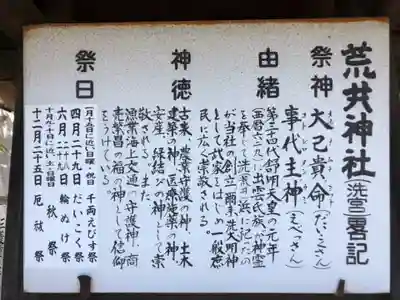 荒井神社(洗宮)畧記
祭神 大己貴命(だいこくさん)
事代主神(えべっさん)
由緒
第三十四代舒明天皇の元年
(西暦六二九)出雲民族が神霊
を奉じて洗来の浜に祀ったの
が当社の創立、爾来洗大明神
として武家をはじめ一般庶
民に広く崇敬される。
神徳
古来、農業守護の神、土木
建築の神、医療施薬の神、
安産、縁結びの神として崇
敬される。また
漁業海上交通の守護神、商
売繁昌の福の神として信仰
をうけている。
祭日
一月十日に近い日曜・祝日 千両えびす祭
四月二十九日 だいこく祭
六月 二十九日 三十日 輪ぬけ祭
十月九・十日に近い土・日曜日 秋祭
十二月二十五日 厄祓祭